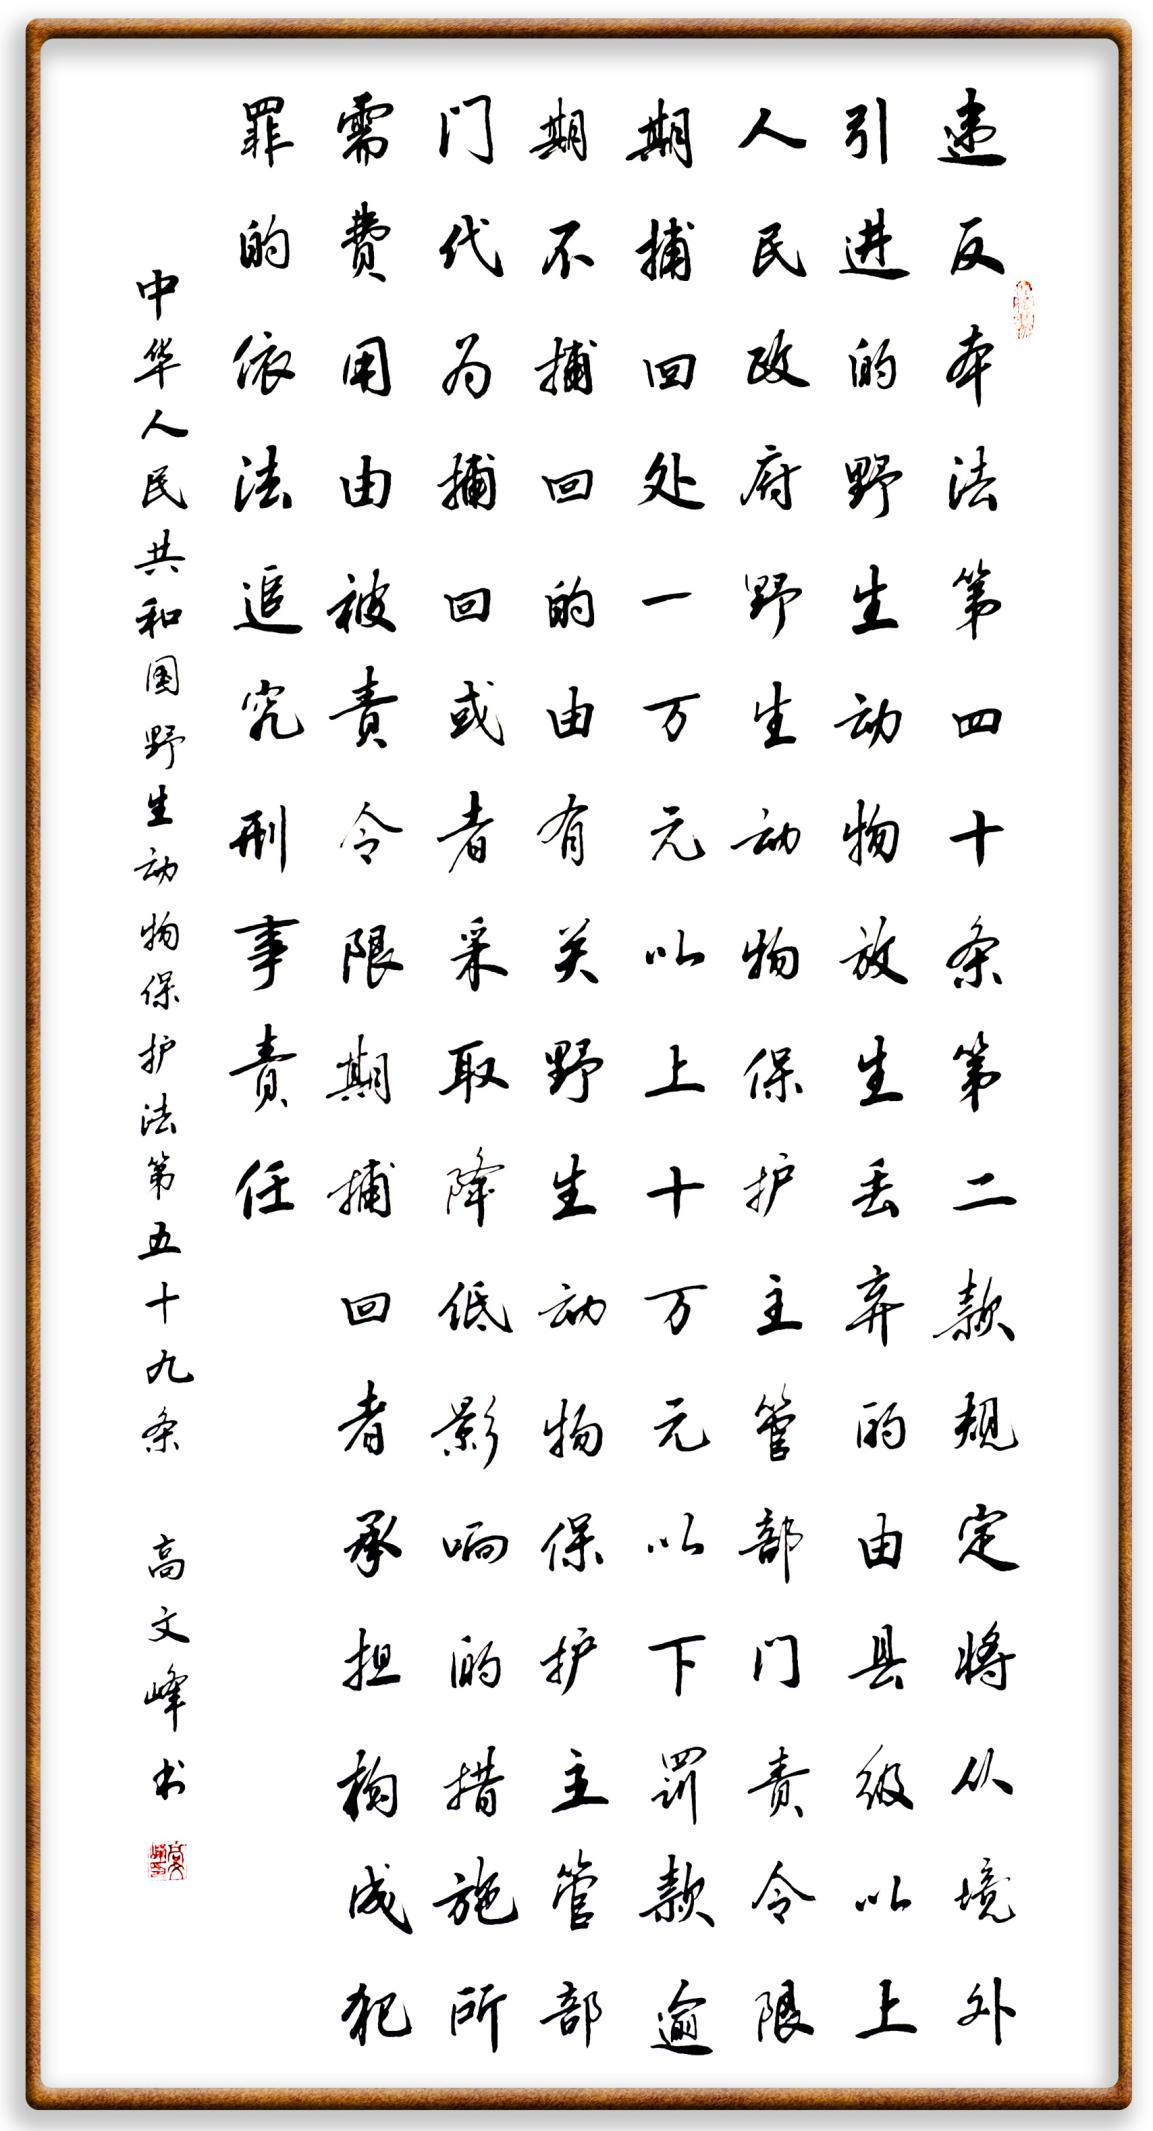 违反本法第四十条第二款规定将从境外
引进的野生动物放生丢弃的由县级以上
人民政府野生动物保护主管部门责令限
期捕回处一万元以上十万元以下罚款逾
期不捕回的由有关野生动物保护主管部
门代为捕回或者采取降低影响的措施所
需费用由被责令限期捕回者承担构成犯
罪的依法追究刑事责任
中华人民共和国野生动物保护法第五十九条 高文峰书